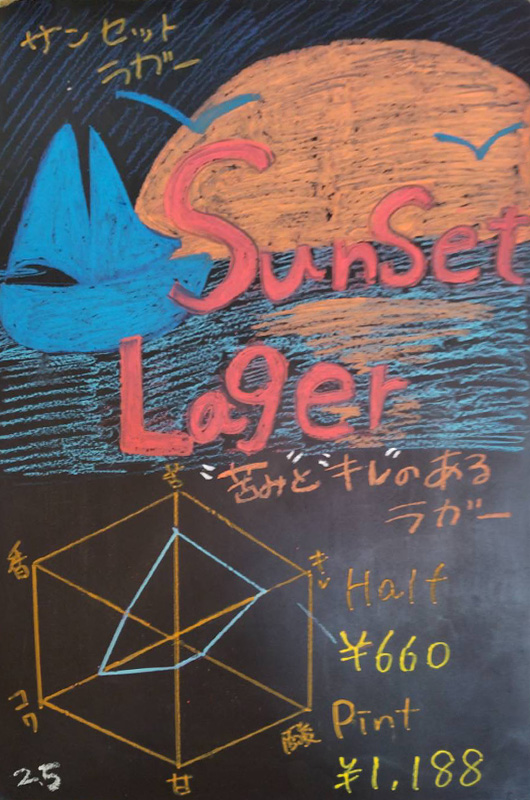 サンセット
ラガー
Sunset
Lager
"苦み"と"キレ"のある
ラガー
苦
香
キレ
Half
¥660
コク
酸
Pint
甘
¥1,188
2.5